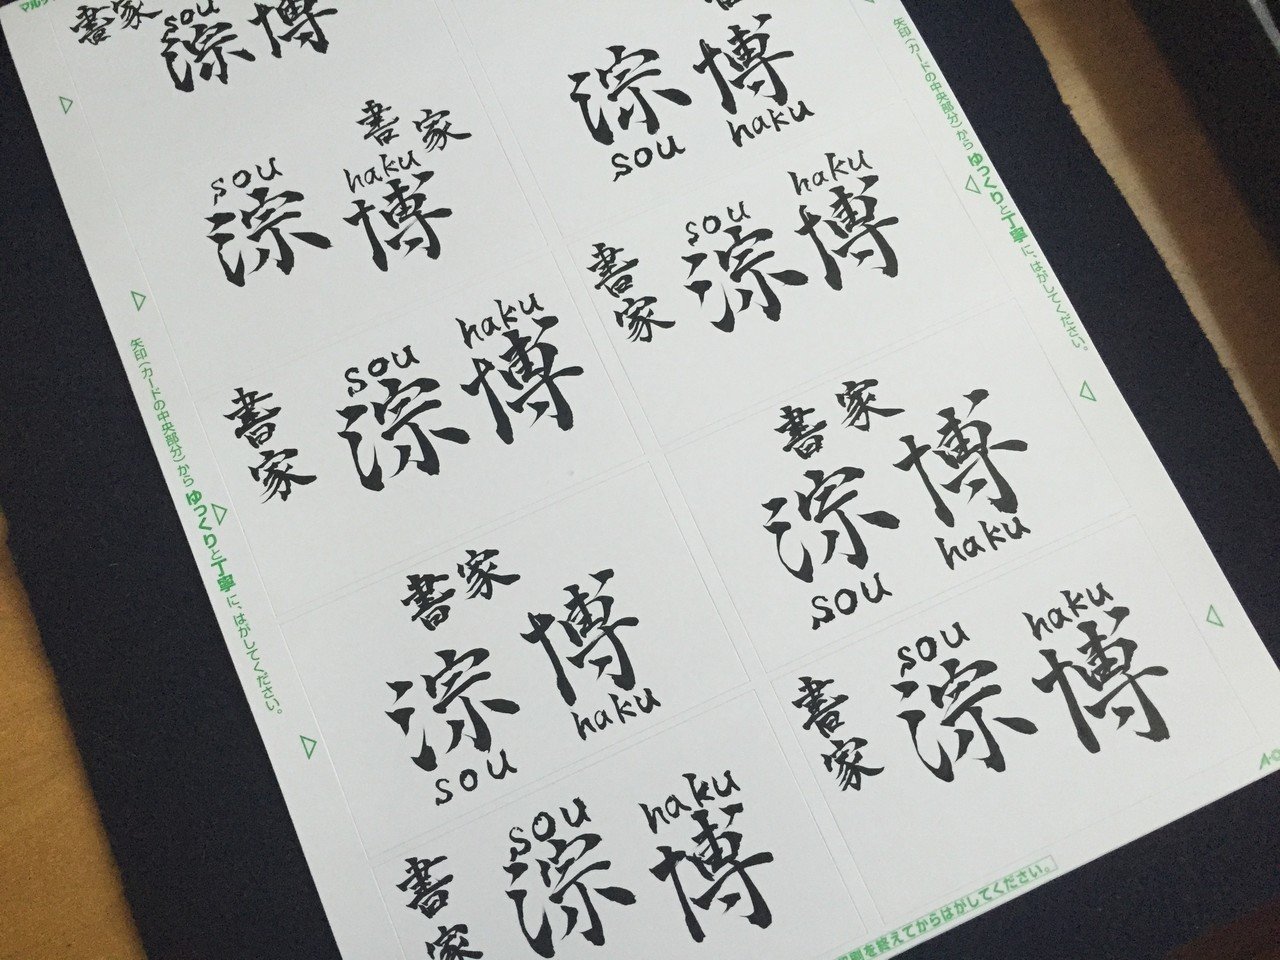 マルチ
書家
sou
淙博
書家
sou haku
淙博
書家
sou haku
淙博
書家
淙博
sou haku
書家
sou haku
淙博
淙博
sou haku
書家
sou haku
淙博
書家
淙博
sou haku
書家
sou haku
淙博
矢印(カードの中央部分)からゆっくりと丁寧に、はがしてください。
矢印(カードの中央部分)からゆっくりと丁寧に、はがしてください。
刷を終えてからはがしてください。